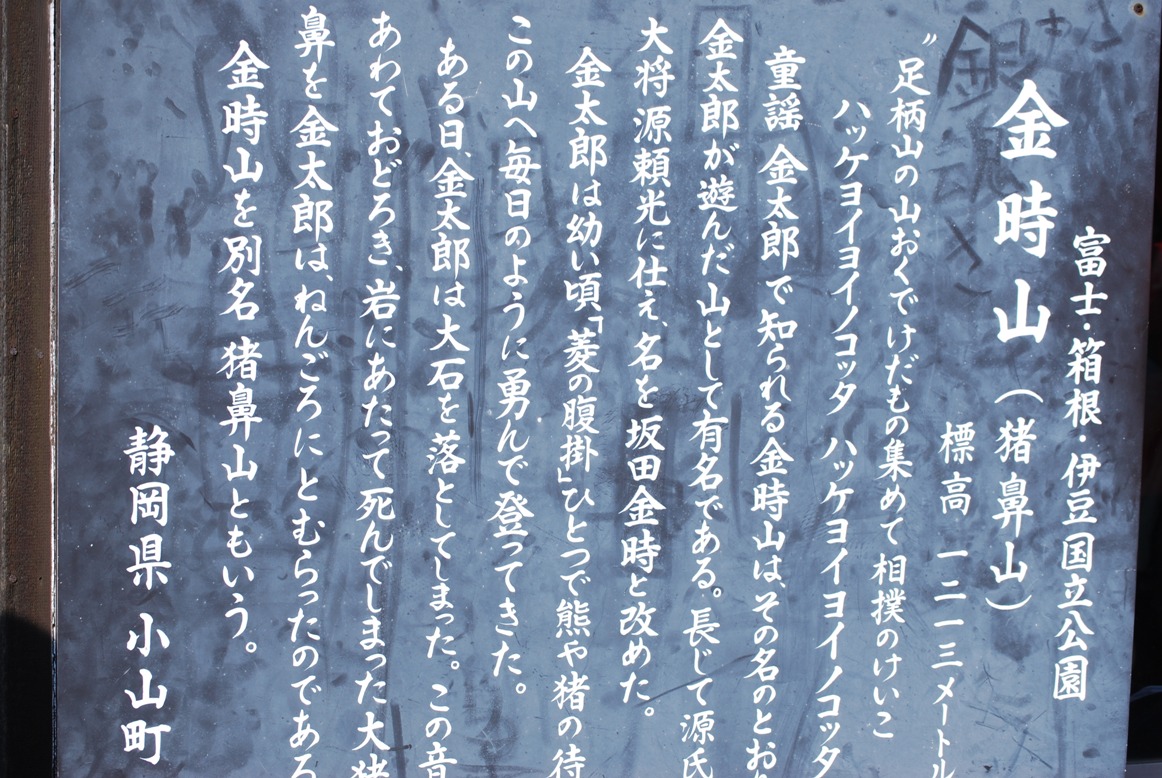 富士・箱根・伊豆国立公園
金時山（猪鼻山）
標高 一二一三メートル
〃足柄山の山おくでけだもの集めて相撲のけいこ
ハッケヨイヨイノコッタ ハッケヨイヨイノコッタ
童謡 金太郎で知られる金時山は、その名のとおり
金太郎が遊んだ山として有名である。長じて源氏
大将源頼光に仕え、名を坂田金時と改めた。
金太郎は幼い頃、「菱の腹掛」ひとつで熊や猪の待
この山へ毎日のように勇んで登ってきた。
ある日、金太郎は大石を落としてしまった。この音
あわておどろき、岩にあたって死んでしまった大猪
鼻を金太郎は、ねんごろにとむらったのである
金時山を別名 猪鼻山ともいう。
静岡県 小山町